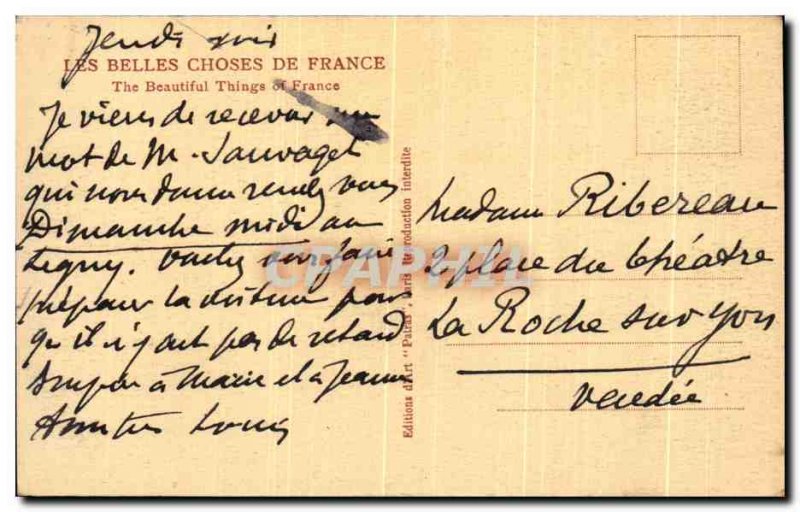 Jeudi soir
LES BELLES CHOSES DE FRANCE
The Beautiful Things of France
Je viens de recevoir un
mot de M. Sauvaget
qui nous donne rendez vous
Dimanche midi au
Legny.
préparer la voiture pour
qu'il n'y ait pas de retard
à Marie et à Jeanne
Amitiés Louis
Editions d'Art "Patras", Paris Reproduction interdite
Madame Ribereau
2 place du théatre
La Roche sur Yon
Vendée
CPAPHIL